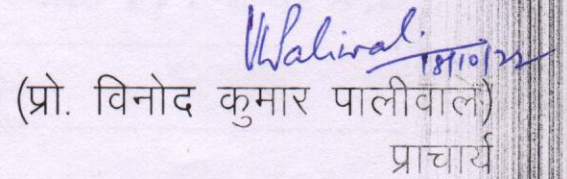 VKPaliwal.
18/10/22
(प्रो. विनोद कुमार पालीवाल)
प्राचार्य